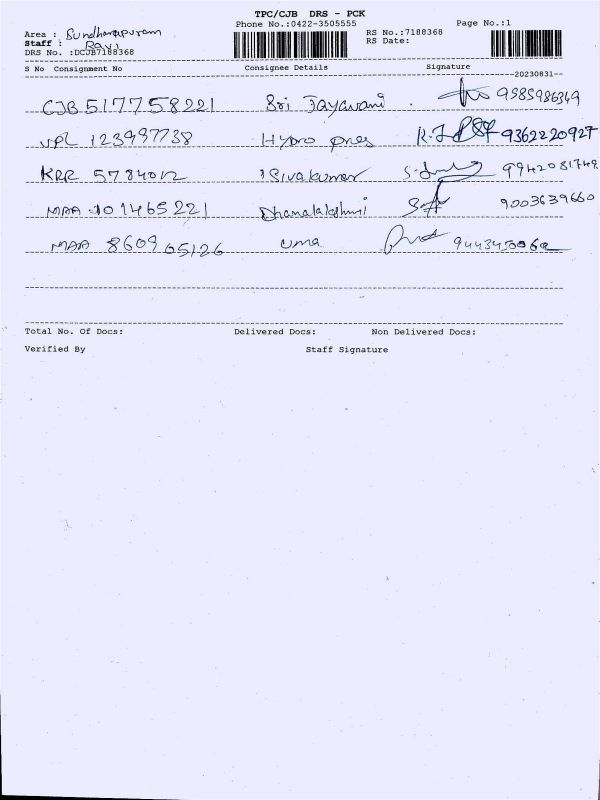 TPC/CJB DRS - PCK
Phone No.:0422-3505555
Page No.:1
Area : Sundharapuram
Staff : Ravi
DRS No. :DCJB7188368
RS No.:7188368
RS Date:
S No Consignment No Consignee Details Signature
--20230831--
CJB 517758221 Sri Jayavani 9585986349
VPL 123997738 Hydro pnes 9362220927
KRR 5784012 Sivakumar 9942081749
MAA 101465221 Dhanalakshmi 9003639660
MAA 860965126 uma
Total No. Of Docs: Delivered Docs: Non Delivered Docs:
Verified By Staff Signature